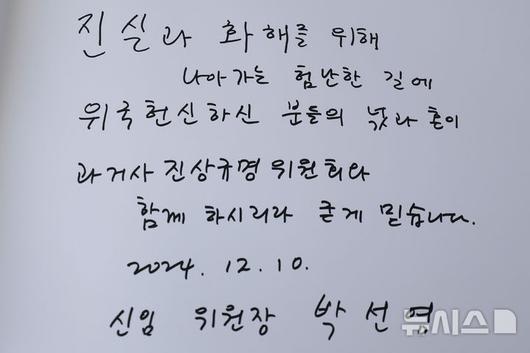 진실과 화해를 위해
나아가는 험난한 길에
위국헌신하신 분들의 넋과 혼이
과거사 진상규명 위원회와
함께 하시리라 굳게 믿습니다.
2024. 12. 10.
신임 위원장 박선영
뉴시스